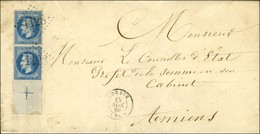 Monsieur
Monsieur Le Conseiller d'Etat
Préfet de la Somme en son
Cabinet
Amiens
PARIS
15